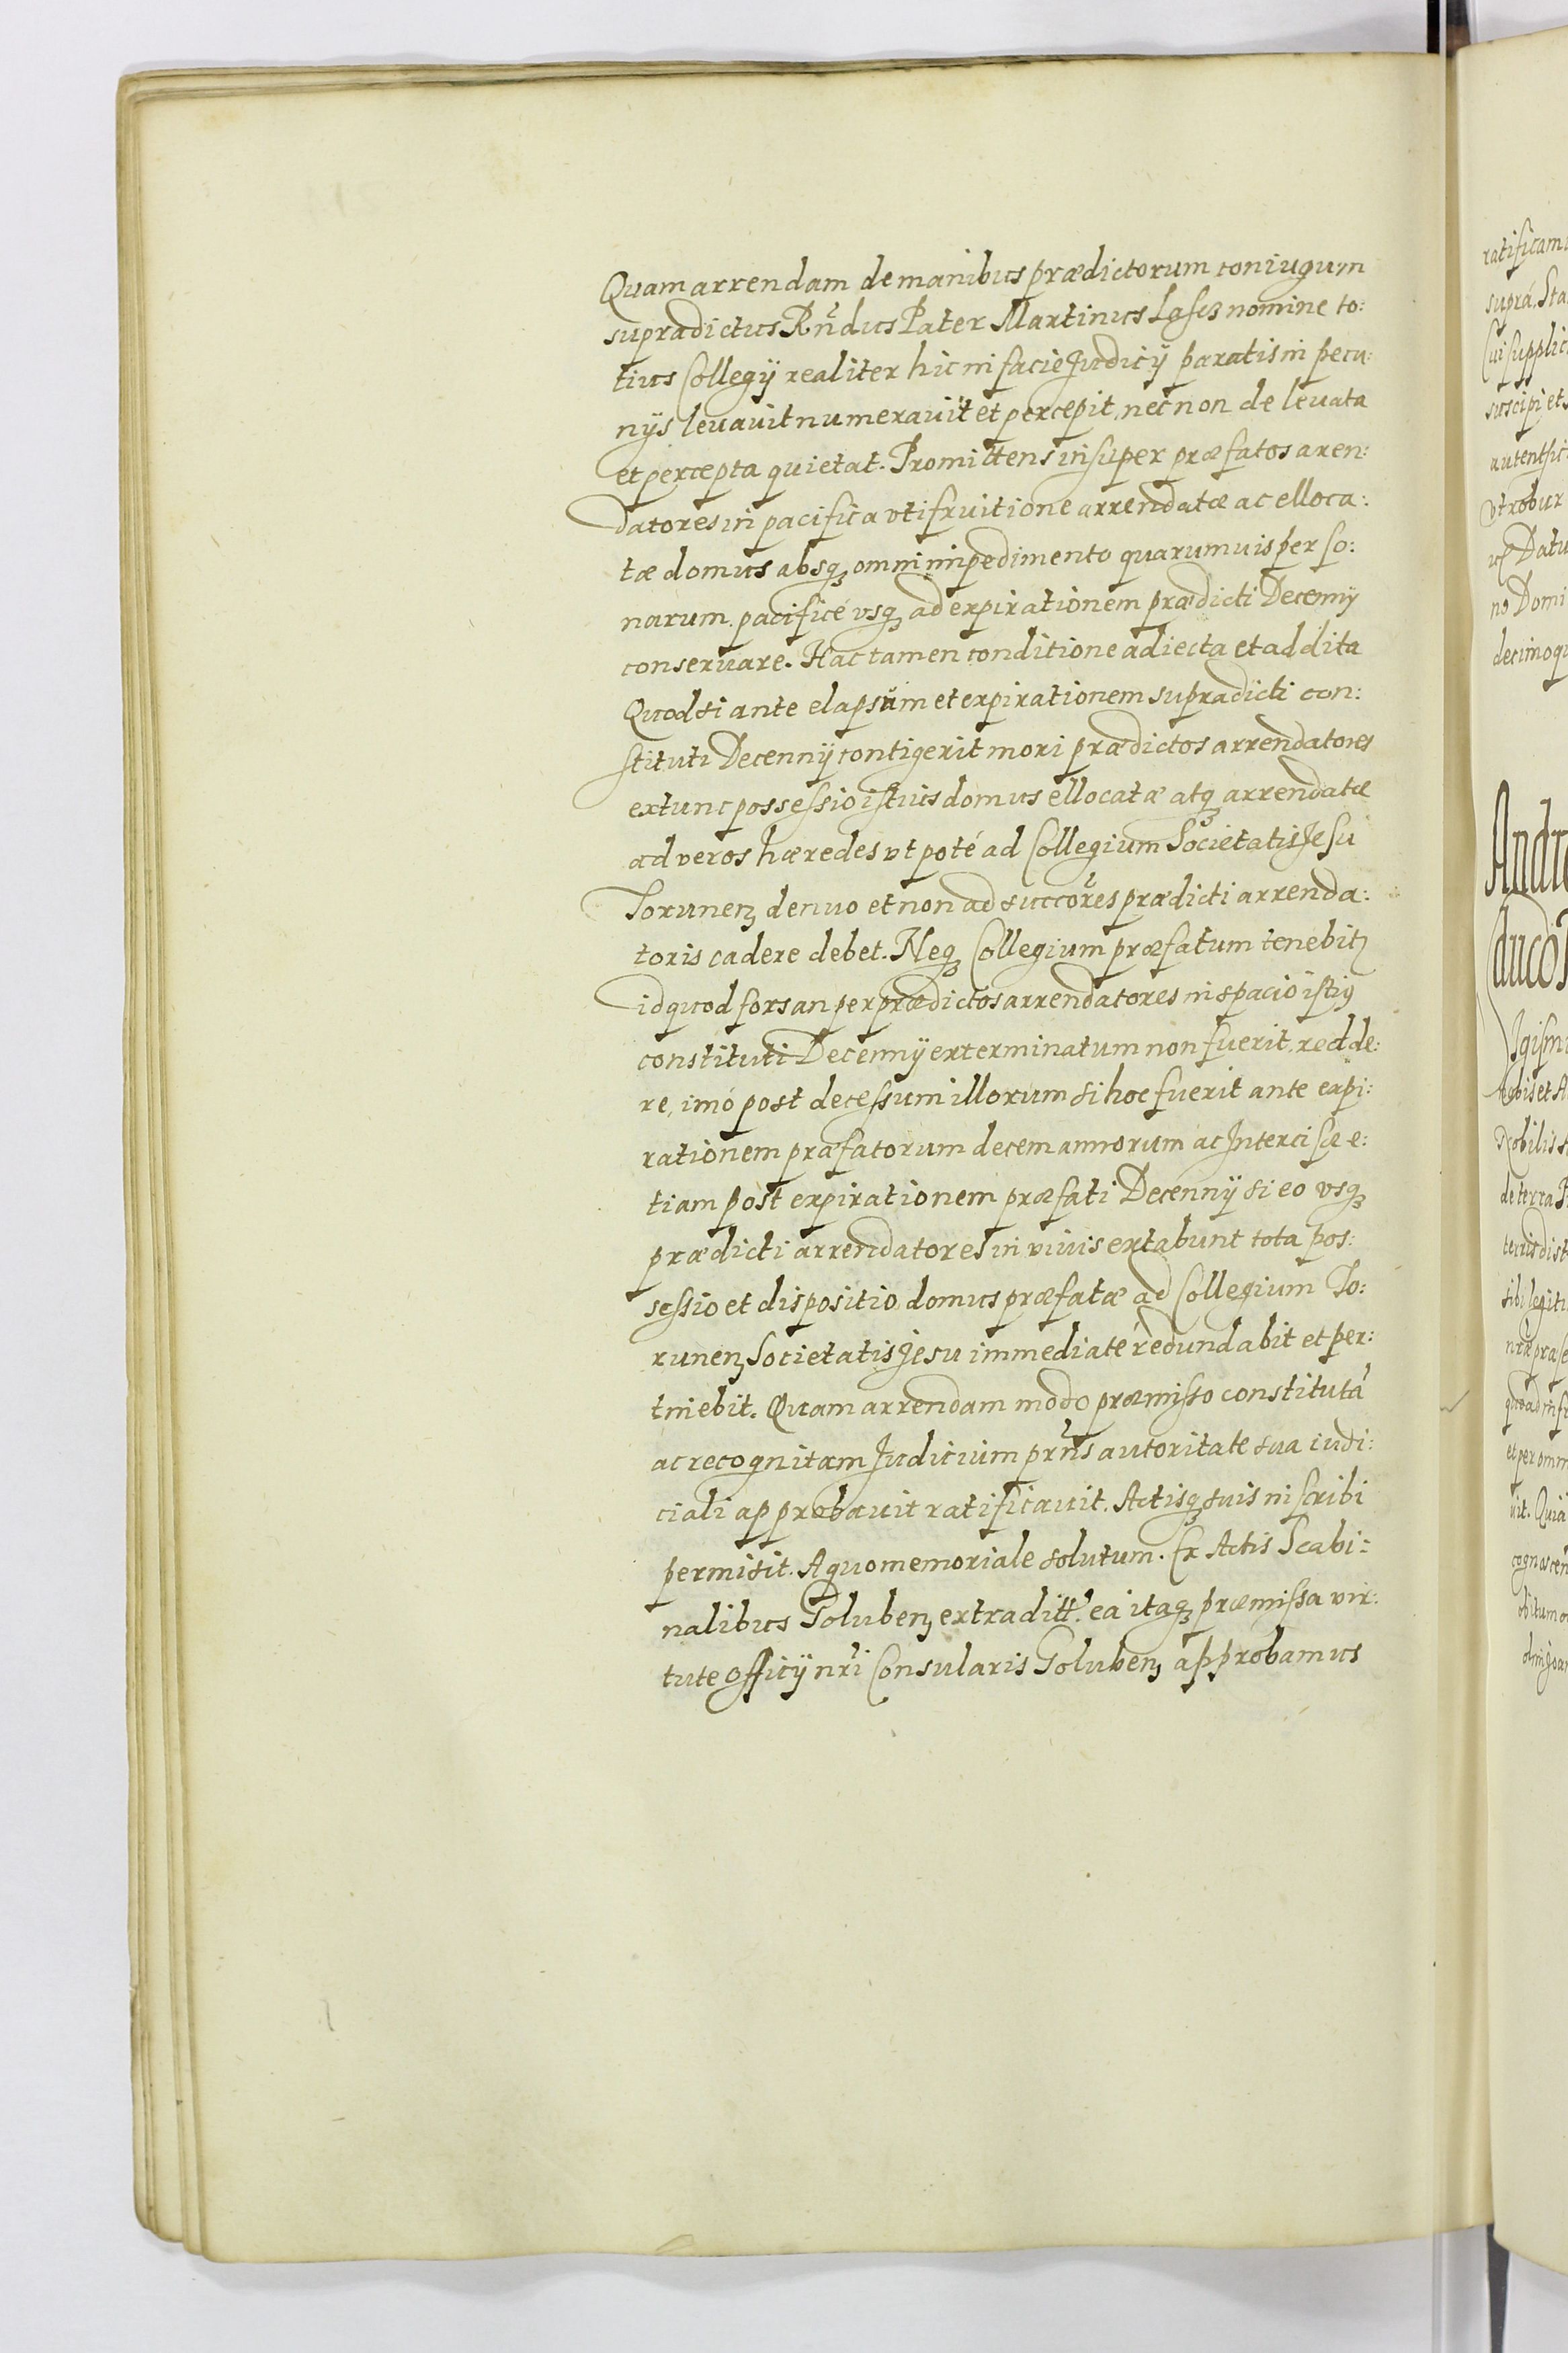 Quam arrendam de manibus prædictorum coniugum
supradictus Rñdus Pater Martinus Lascz nomine to:
tius Collegij realiter hic in facie Judicij paratis in pecu:
nijs leuauit numerauit et percepit, nec non de leuata
et percepta quietat. Promittens insuper præfatos aren:
datores in pacifica vtifruitione arrendatæ ac elloca:
tæ domus absq₃ omni impedimento quarumuis perso:
narum pacificé vsq₃ ad expirationem prædicti Decenny
conseruare. Hac tamen conditione adiecta et addita
Quod si ante elapsum et expirationem supradicti con:
stituti Decennij contigerit mori prædictos arrendatores
extunc possessio istius domus ellocatæ atq₃ arrendatæ
ad veros hæredes vt poté ad Collegium Societatis Jesu
Torunen₃ denuo et non ad succōres prædicti arrenda:
toris cadere debet. Neq₃ Collegium præfatum tenebit₃
id quod forsan per prædictos arrendatores in spacio istiꝰ
constituti Decennij exterminatum non fuerit, redde:
re, imó post decessum illorum si hoc fuerit ante expi:
rationem præfatorum decem annorum ac Intercisæ e:
tiam post expirationem præfati Decennij si eo vsq₃
prædicti arrendatores in viuis extabunt tota pos:
sessio et dispositio domus præfatæ ad Collegium To:
runen₃ Societatis Jesu immediate redundabit et per:
tinebit. Quam arrendam modo præmisso constitutā
ac recognitam Judicium prñs autoritate sua iudi:
ciali approbauit ratificauit. Actisq₃ suis inscribi
permisit. A quo memoriale solutum. Ex Actis Scabi:
nalibus Goluben₃ extraditt. ea itaq₃ præmissa vir:
tute officij nr̃i Consularis Goluben₃ approbamus